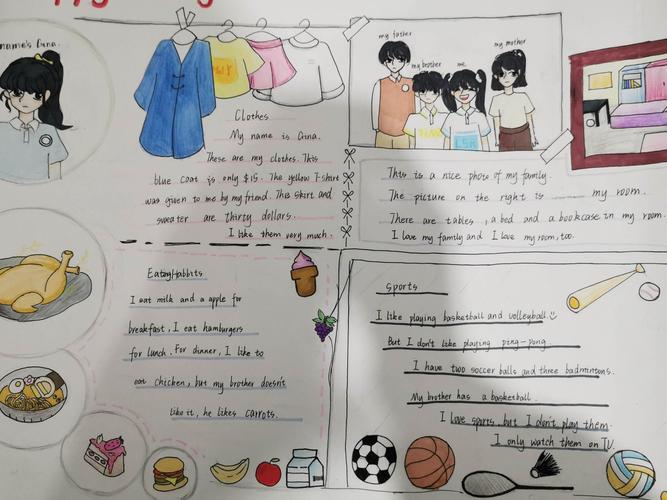 name's Gina.
Clothes
My name is Gina.
These are my clothes. This
blue coat is only $15. The yellow T-shirt
was given to me by my friend. This skirt and
sweater are thirty dollars.
I like them very much.
my father
my brother
me
my mother
This is a nice photo of my family.
The picture on the right is my room.
There are tables, a bed and a bookcase in my room.
I love my family and I love my room, too.
EatingHabbits
I eat milk and a apple for
breakfast, I eat hamburgers
for lunch. For dinner, I like to
eat chicken, but my brother doesn't
like it, he likes carrots.
Sports
I like playing basketball and volleyball.
But I don't like playing ping-pong.
I have two soccer balls and three badmintons.
My brother has a basketball.
I love sports, but I don't play them.
I only watch them on TV.